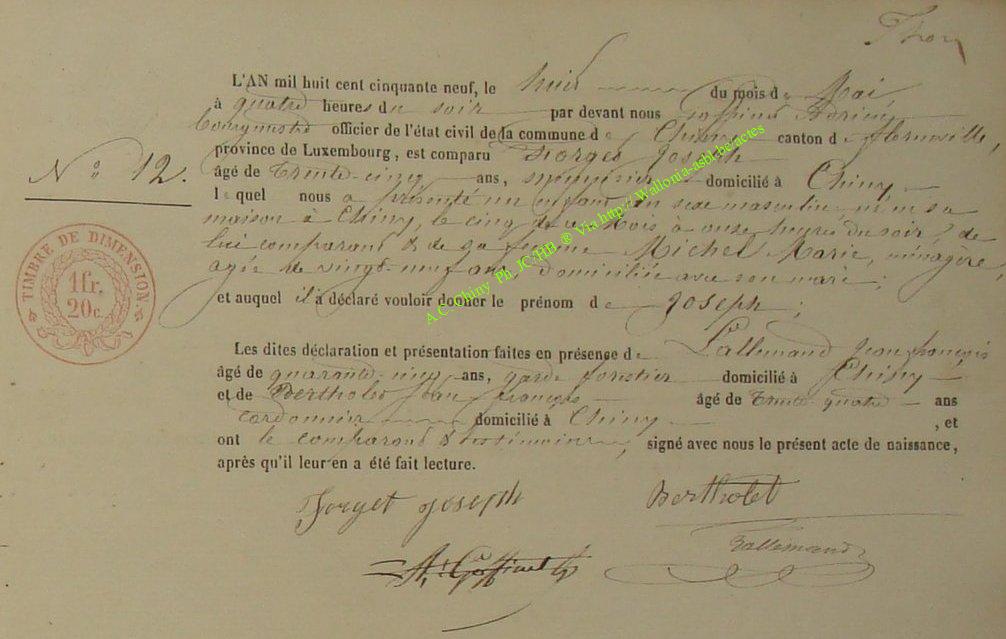 N° 12.
L'AN mil huit cent cinquante neuf, le huit du mois de Mai,
à quatre heures du soir par devant nous Goffinet Adrien,
Bourgmestre officier de l'état civil de la commune de Chiny canton de Florenville,
province de Luxembourg, est comparu Forget Joseph
âgé de Trente-cinq ans, domicilié à Chiny
lequel nous a présenté un enfant du sexe masculin né en sa
maison à Chiny, le cinq de ce Mois à onze heures du soir, de
lui comparant & de sa femme Michel Marie, ménagère
agée de vingt-neuf ans domiciliée avec son mari;
et auquel il a déclaré vouloir donner le prénom de Joseph;
Les dites déclaration et présentation faites en présence de Lallemand Jean françois
âgé de quarante-cinq ans, garde forestier domicilié à Chiny
et de Bertholet Jean françois âgé de Trente-quatre ans
cordonnier domicilié à Chiny, et
ont le comparant & les témoins, signé avec nous le présent acte de naissance,
après qu'il leur en a été fait lecture.
Forget Joseph
Bertholet
Lallemand
A. Goffinet
TIMBRE DE DIMENSION.
1fr.
20c.
A.C. Chiny Ph. JC/HB ® Via http://Wallonia-asbl.be/actes